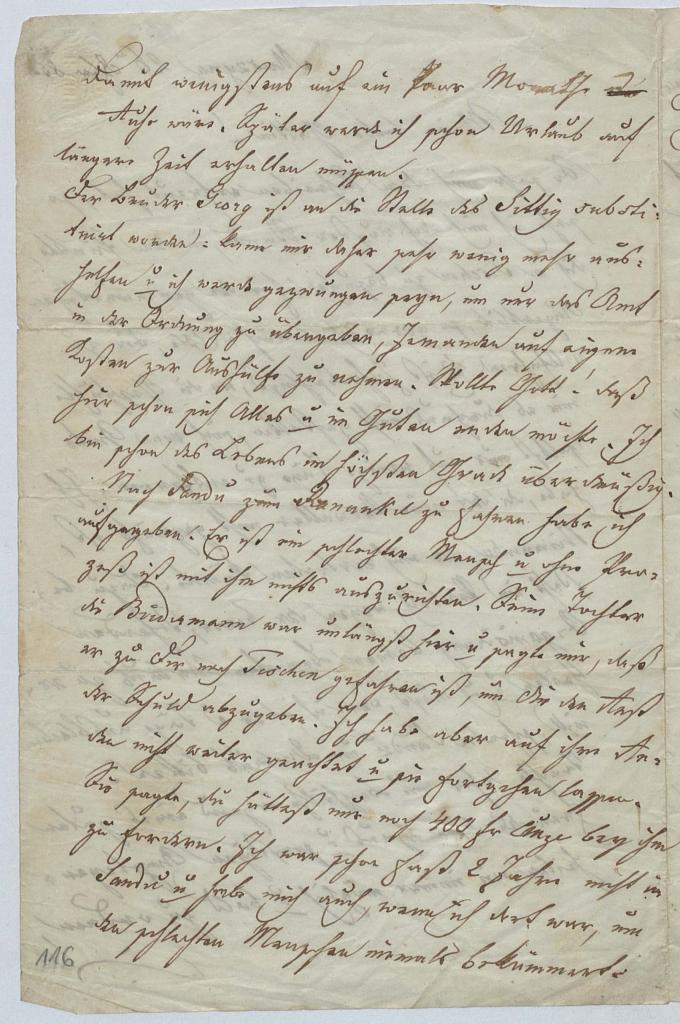 damit wenigstens auf ein Paar Monathe
Ruhe wäre. Später werde ich schon Urlaub auf
längere Zeit erhalten müssen.
Der Bruder Georg ist an die Stelle des Sittig substi-
tuirt worden: kann mir daher sehr wenig mehr aus-
helfen u ich werde gezwungen seyn, um nur das Amt
in der Ordnung zu übergeben, Jemanden auf eigene
Kosten zur Aushülfe zu nehmen. Wollte Gott! daß
hier schon sich Alles u im Guten enden möchte. Ich
bin schon des Lebens im höchsten Grade überdrüßig.
Nach Sandu zum zu fahren habe ich
aufgegeben. Er ist ein schlechter Mensch u ohne Pro-
zeß ist mit ihm nichts auszurichten. Seine Tochter
die war unlängst hier u sagte mir, daß
er zu Dir nach Teschen gefahren ist, um Dir den Rest
der Schuld abzugeben. Ich habe aber auf ihre Re-
den nicht weiter geachtet u sie fortgehen lassen.
Sie sagte, du hättest nur noch 400 fr bey ihm
zu fordern. Ich war schon fast 2 Jahre nicht in
Sandu u habe mich auch, wenn ich dort war, um
den schlechten Menschen niemals bekümmert.
116